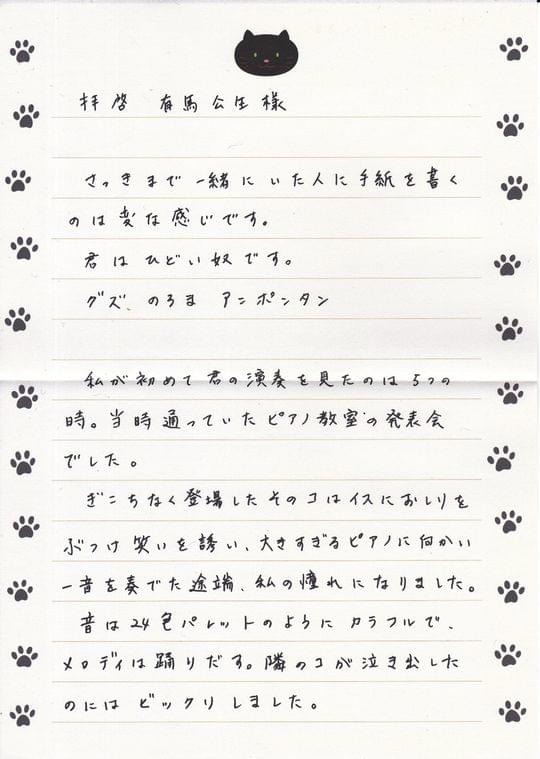 拝啓 有馬公生様
さっきまで一緒にいた人に手紙を書く
のは変な感じです。
君はひどい奴です。
グズ、のろま アンポンタン
私が初めて君の演奏を見たのは5つの
時。当時通っていたピアノ教室の発表会
でした。
ぎこちなく登場したそのコはイスにおしりを
ぶつけ笑いを誘い、大きすぎるピアノに向かい
一音を奏でた途端、私の憧れになりました。
音は24色パレットのようにカラフルで、
メロディは踊りだす。隣のコが泣き出した
のにはビックリしました。